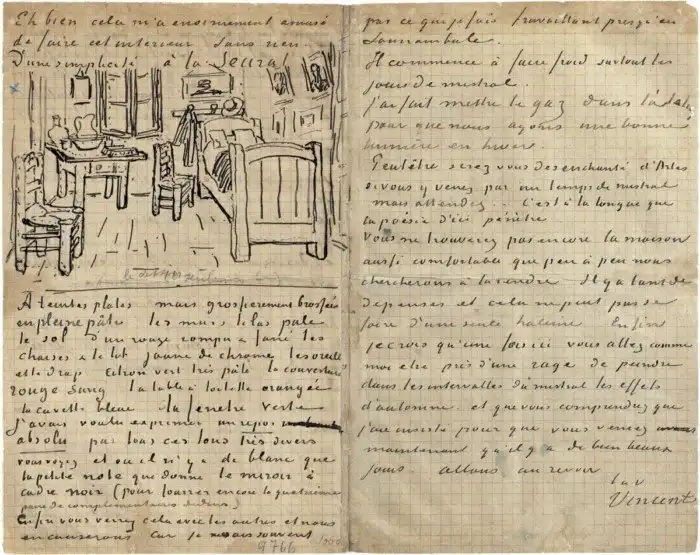 Eh bien cela m'a enormement amusé
de faire cet interieur sans rien.
D'une simplicité à la Seurat
À teintes plates mais grossierement brossées
en pleine pâte les murs lilas pale
le sol d'un rouge rompu & fané les
chaises & le lit jaune de chrome les oreillers
et le drap citron vert très pâle la couverture
rouge sang la table à toilette orangée
la cuvette bleue la fenetre verte
J'avais voulu exprimer un repos
absolu par tous ces tons très divers
vous voyez et où il n'y a de blanc que
la petite note que donne le miroir à
cadre noir (pour fourrer encore la quatrième
paire de complementaires dedans)
Enfin vous verrez cela avec les autres et nous
en causerons car je ne sais souvent
9766
pas ce que je fais travaillant presqu'en
somnambule.
Il commence à faire froid surtout les
jours de mistral.
J'ai fait mettre le gaz dans l'atelier
pour que nous ayons une bonne
lumière en hiver.
Peutêtre serez vous desenchanté d'Arles
si vous y venez par un temps de mistral
mais attendez.. C'est à la longue que
la poésie d'ici pénètre
Vous ne trouverez pas encore la maison
aussi comfortable que peu à peu nous
chercherons à la rendre. Il y a tant de
depenses et cela ne peut pas se
faire d'une seule haleine. Enfin
je crois qu'une fois ici vous allez comme
moi etre pris d'une rage de peindre
dans les intervalles du mistral les effets
d'automne. et que vous comprendrez que
j'ai insisté pour que vous veniez
maintenant qu'il y a de bien beaux
jours. allons au revoir
t. à v.
Vincent